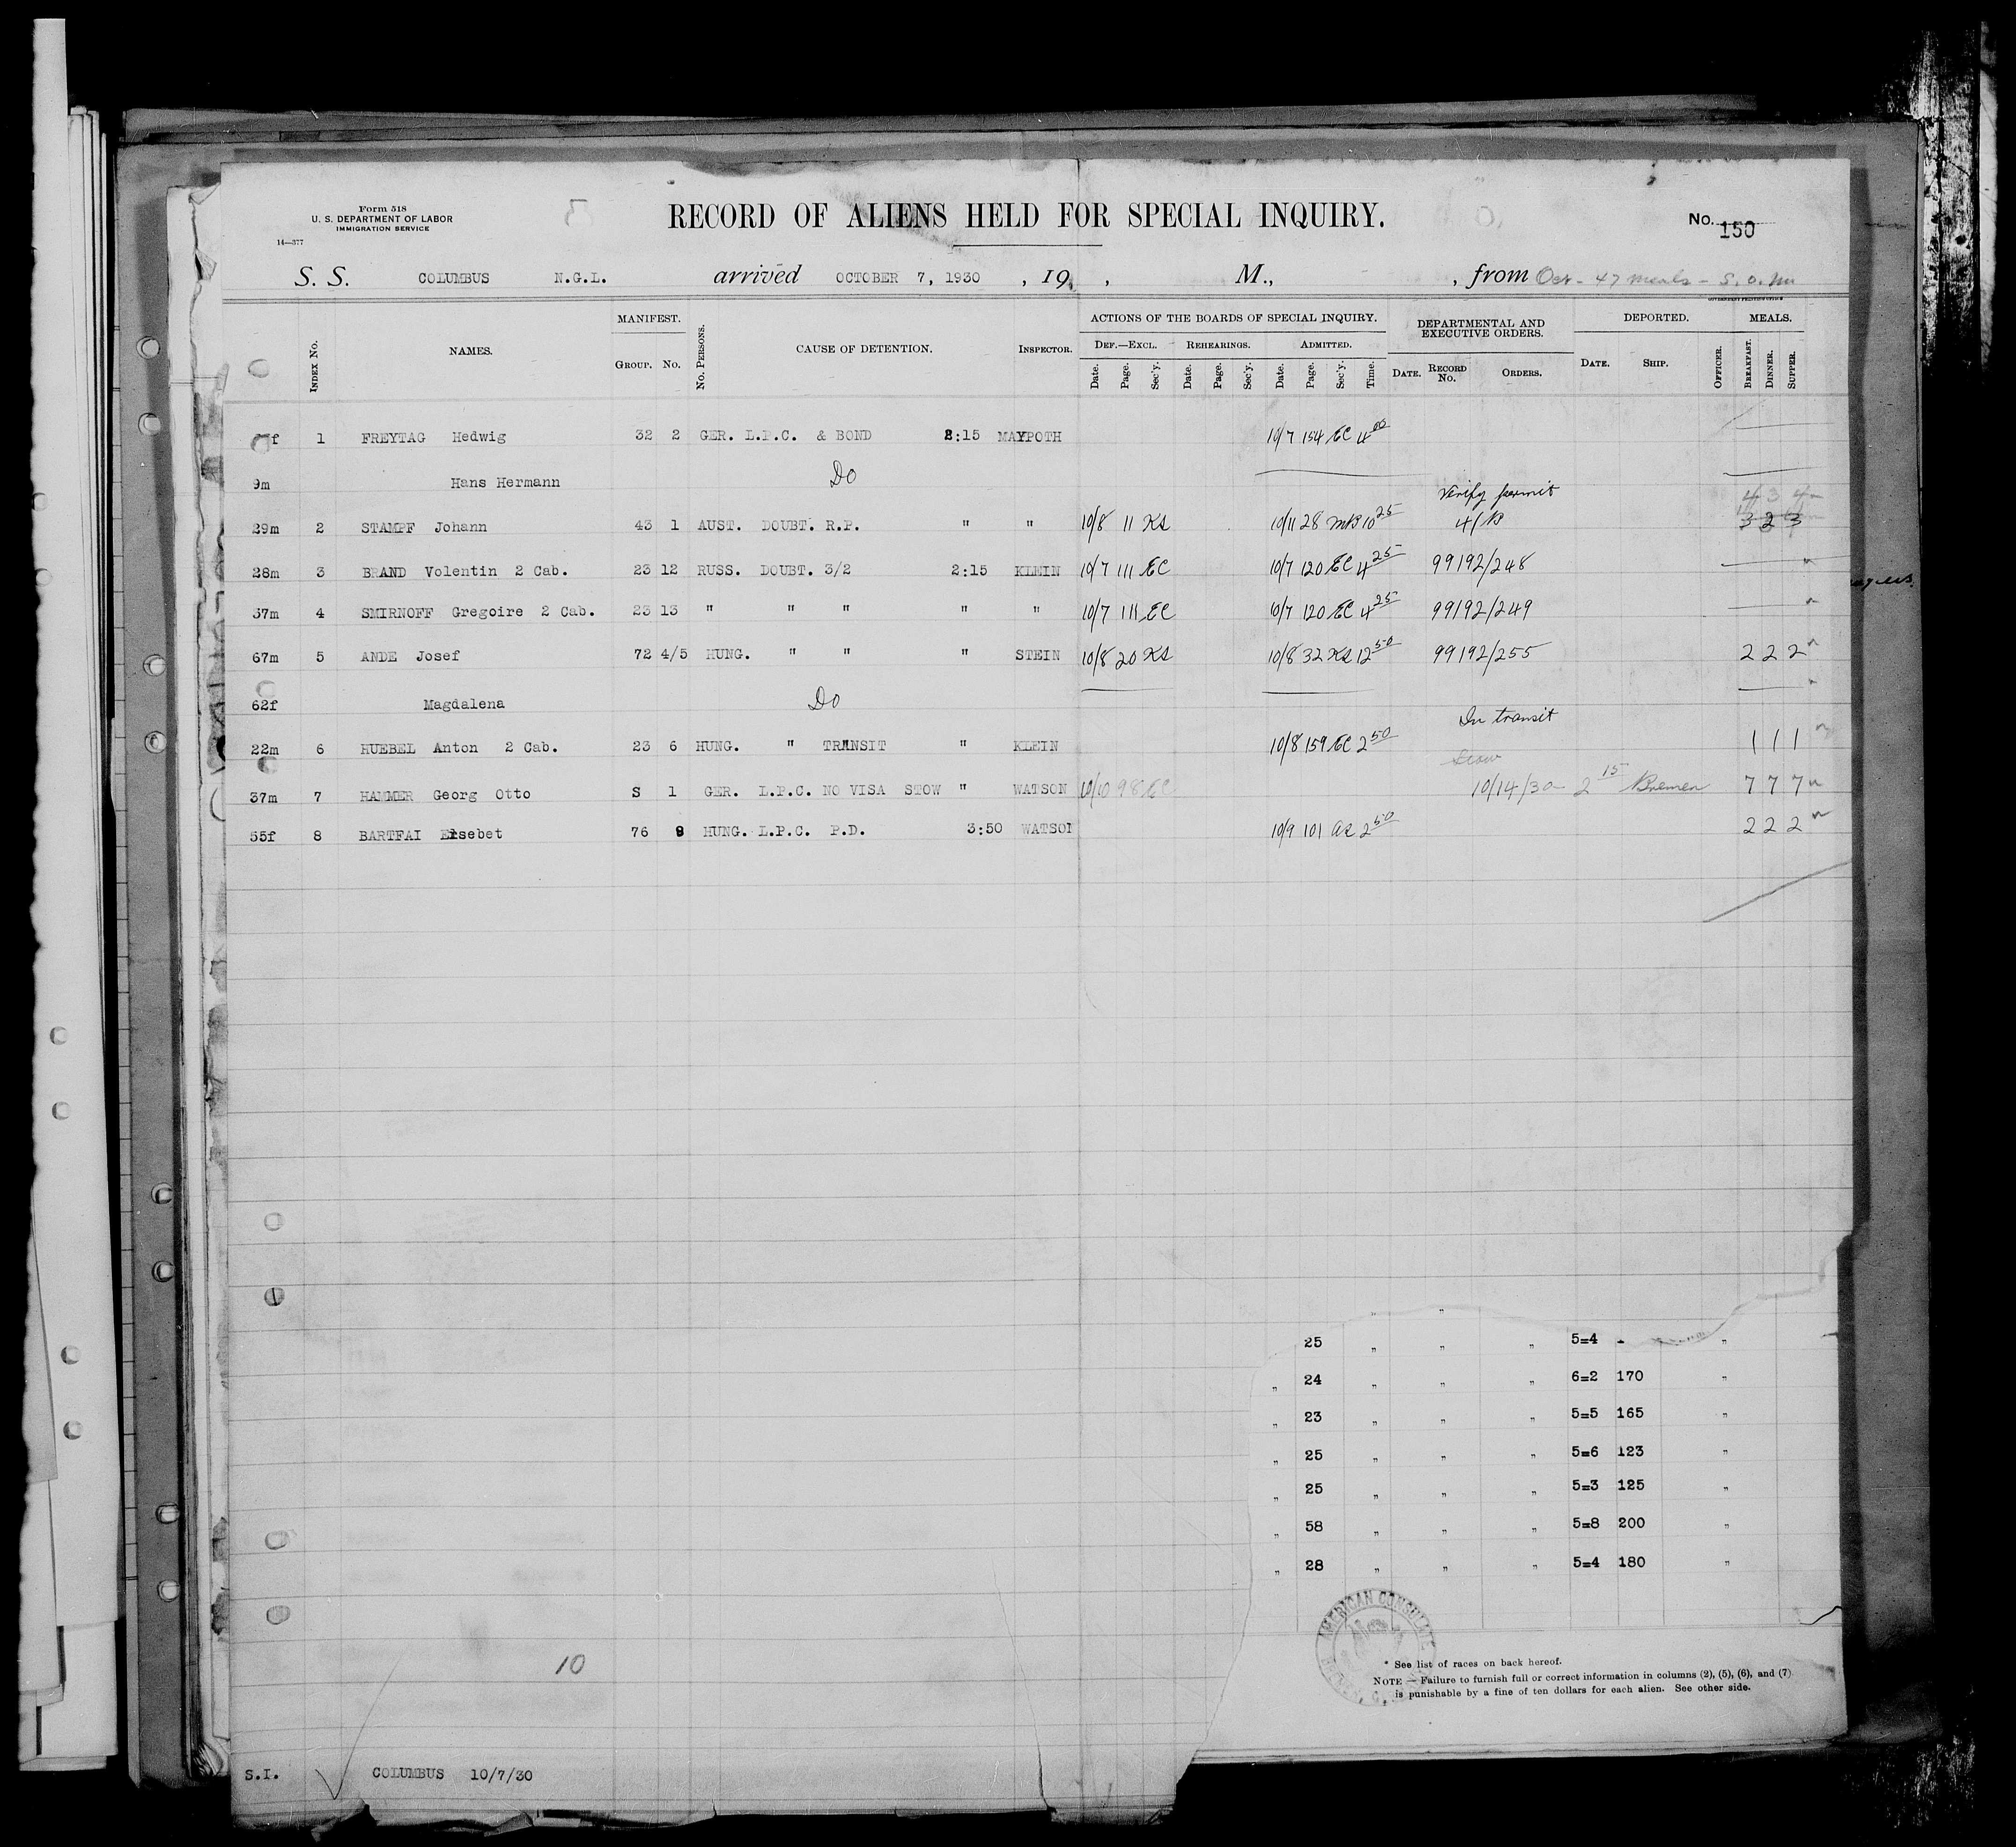 Form 518
U. S. DEPARTMENT OF LABOR
IMMIGRATION SERVICE
14—377
RECORD OF ALIENS HELD FOR SPECIAL INQUIRY.
No. 150
S. S. COLUMBUS N.G.L. arrived OCTOBER 7, 1930 , 19 , M., , from Oct - 47 meals - S. O. M
MANIFEST. ACTIONS OF THE BOARDS OF SPECIAL INQUIRY. DEPARTMENTAL AND EXECUTIVE ORDERS. DEPORTED. MEALS.
INDEX NO. NAMES. GROUP. NO. NO. PERSONS. CAUSE OF DETENTION. INSPECTOR. DEF.—EXCL. REHEARINGS. ADMITTED.
Date. Page. Sec'y. Date. Page. Sec'y. Date. Page. Sec'y. Time. DATE. RECORD NO. ORDERS. DATE. SHIP. OFFICER. BREAKFAST. DINNER. SUPPER.
f 1 FREYTAG Hedwig 32 2 GER. L.P.C. & BOND 2:15 MAYPOTH 10/7 154 EC 4 00
9m Hans Hermann Do
Verify permit
29m 2 STAMPF Johann 43 1 AUST. DOUBT. R.P. " " 10/8 11 KS 10/11 28 MB 10 25 4/B 4 3 4 3 2 3
28m 3 BRAND Volentin 2 Cab. 23 12 RUSS. DOUBT. 3/2 2:15 KLEIN 10/7 111 EC 10/7 120 EC 4 25 99192/248
37m 4 SMIRNOFF Gregoire 2 Cab. 23 13 " " " " " 10/7 111 EC 10/7 120 EC 4 25 99192/249
67m 5 ANDE Josef 72 4/5 HUNG. " " " STEIN 10/8 20 KS 10/8 32 KS 12 50 99192/255 2 2 2
62f Magdalena Do
In transit
22m 6 HUEBEL Anton 2 Cab. 23 6 HUNG. " TRANSIT " KLEIN 10/8 159 EC 2 50 1 1 1
Stow
37m 7 HAMMER Georg Otto S 1 GER. L.P.C. NO VISA STOW " WATSON 10/10 98 EC 10/14/30 2 15 Bremen 7 7 7
55f 8 BARTFAI Elsebet 76 9 HUNG. L.P.C. P.D. 3:50 WATSON 10/9 101 AS 2 50 2 2 2
" "
25 " " " 5=4 - "
" 24 " " " 6=2 170 "
" 23 " " " 5=5 165 "
" 25 " " " 5=6 123 "
" 25 " " " 5=3 125 "
" 58 " " " 5=8 200 "
" 28 " " " 5=4 180 "
AMERICAN CONSULATE
* See list of races on back hereof.
NOTE — Failure to furnish full or correct information in columns (2), (5), (6), and (7)
is punishable by a fine of ten dollars for each alien. See other side.
10
S.I. COLUMBUS 10/7/30